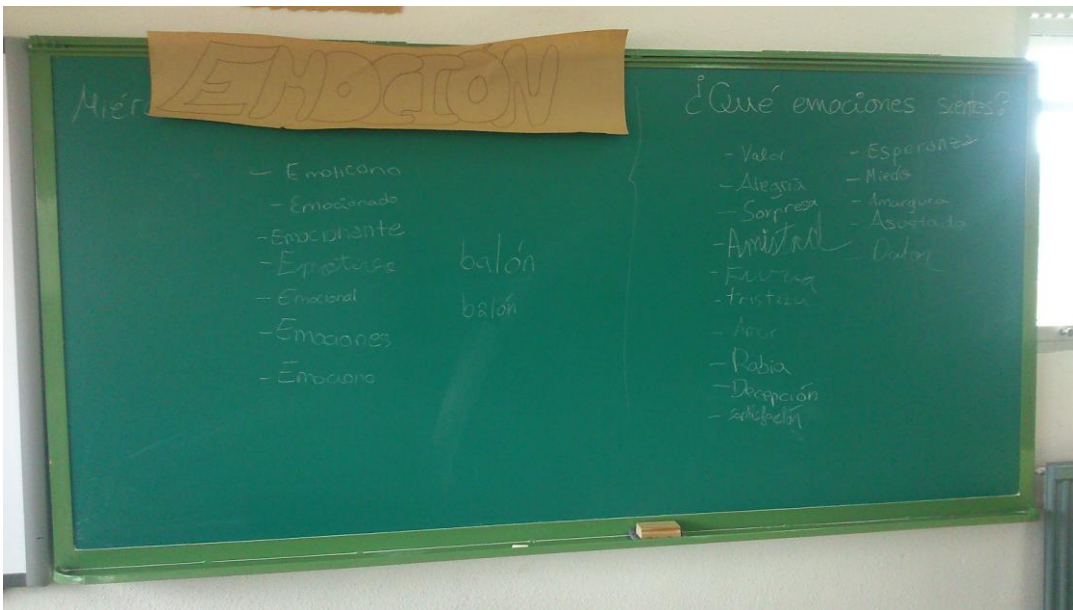 EMOCIÓN
Miér
- Emoticono
- Emocionado
- Emocionante
- Emocional
- Emociones
- Emociono
balón
balón
¿Qué emociones sientes?
- Valor
- Alegría
- Sorpresa
- Amistad
- Furia
- tristeza
- Amor
- Rabia
- Decepción
- satisfacción
- Esperanza
- Miedo
- Amargura
- Asustado
- Dolor